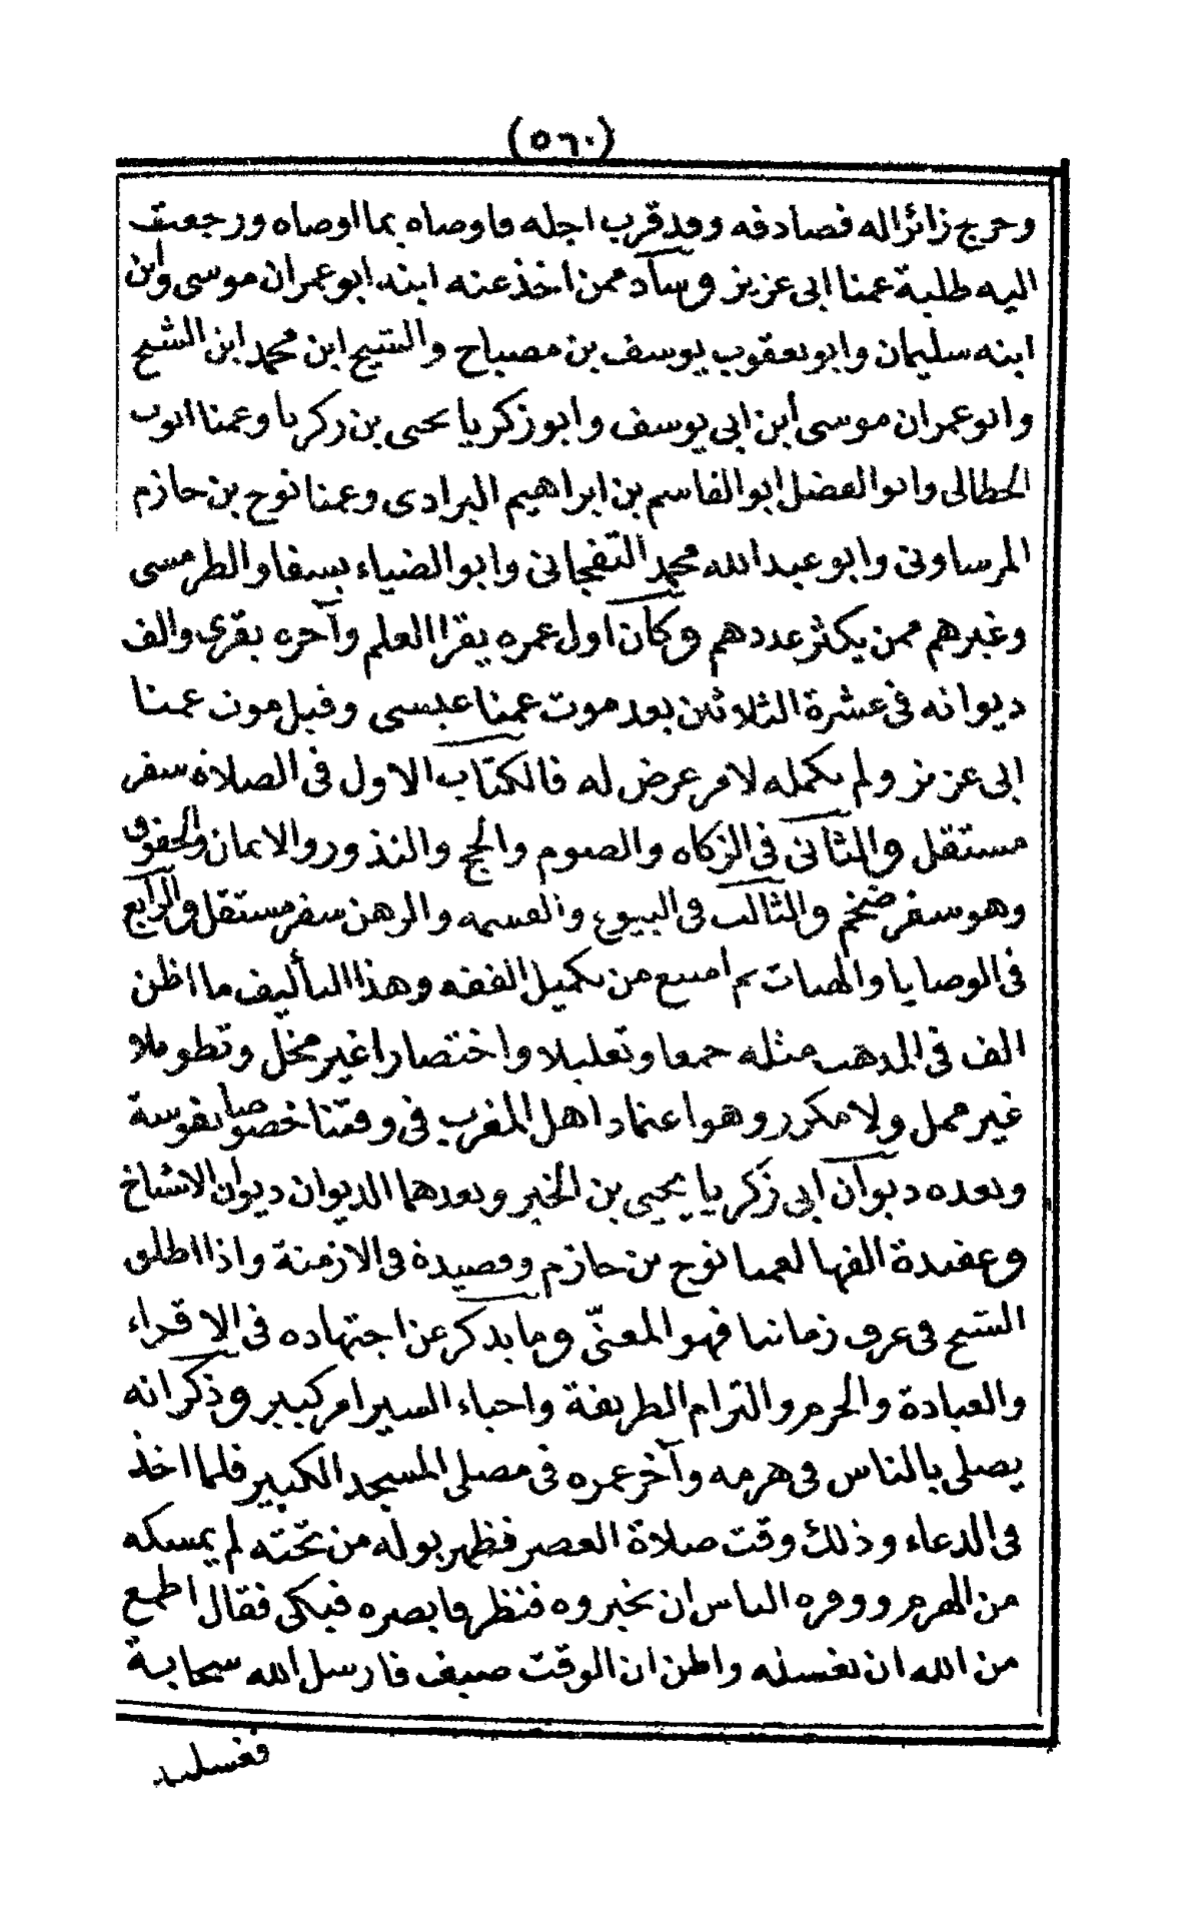 (٥٦٠)
وخرج زائرا له فصادفه وقد قرب اجله فاوصاه بما اوصاه ورجعت
اليه طلبة عمنا ابى عزيز وساد ممن اخذ عنه ابنه ابو عمران موسى وابن
ابنه سليمان وابو يعقوب يوسف بن مصباح والشيخ ابن محمد ابن الشيخ
وابو عمران موسى ابن ابى يوسف وابو زكريا يحيى بن زكريا وعمنا ايوب
الحطالى وابو الفضل ابو القاسم بن ابراهيم البرادى وعمنا نوح بن حازم
المرساونى وابو عبد الله محمد التفجانى وابو الضياء بسفاو الطرمسى
وغيرهم ممن يكثر عددهم وكان اول عمره يقرا العلم وآخره يقرى والف
ديوانه فى عشرة الثلاثين بعد موت عمنا عيسى وقبل موت عمنا
ابى عزيز ولم يكمله لامر عرض له فالكتاب الاول فى الصلاة سفر
مستقل والثانى فى الزكاه والصوم والحج والنذور والايمان والحقوق
وهو سفر ضخم والثالث فى البيوع والقسمه والرهن سفر مستقل والرابع
فى الوصايا والهبات ثم امتنع من تكميل الفقه وهذا التأليف ما اظن
الف فى المذهب مثله جمعا وتعليلا واختصارا غير مخل وتطويلا
غير ممل ولا مكرر وهو اعتماد اهل المغرب فى وقتنا خصوصا نفوسة
وبعده ديوان ابى زكريا يحيى بن الخير وبعدهما الديوان ديوان الاشياخ
وعقيدة الفها لعمنا نوح بن حازم وقصيدة فى الازمنة واذا اطلق
الشيخ فى عرف زماننا فهو المعنّى وما يذكر عن اجتهاده فى الاقراء
والعبادة والحزم والتزام الطريقة واحياء السير امر كبير وذكر انه
يصلى بالناس فى هرمه وآخر عمره فى مصلى المسجد الكبير فلما اخذ
فى الدعاء وذلك وقت صلاة العصر فظهر بوله من تحته لم يمسكه
من الهرم ووقره الناس ان يخبروه فنظر فابصره فبكى فقال اطمع
من الله ان يغسله واظن ان الوقت صيف فارسل الله سحابة
فغسلته